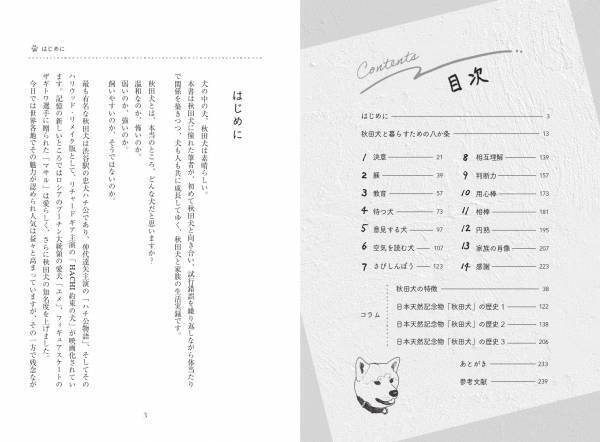 Contents
目次
はじめに 3
秋田犬と暮らすための八か条 13
1 決意 21
2 躾 39
3 教育 57
4 待つ犬 73
5 意見する犬 97
6 空気を読む犬 107
7 さびしんぼう 123
8 相互理解 139
9 判断力 157
10 用心棒 173
11 相棒 181
12 円熟 195
13 家族の肖像 207
14 感謝 223
コラム
秋田犬の特徴 38
日本天然記念物「秋田犬」の歴史1 122
日本天然記念物「秋田犬」の歴史2 138
日本天然記念物「秋田犬」の歴史3 206
あとがき 233
参考文献 239
はじめに
はじめに
犬の中の犬、秋田犬は素晴らしい。
本書は秋田犬に憧れた筆者が、初めて秋田犬と向き合い、試行錯誤を繰り返しながら体当たり
で関係を築きつつ、犬も人も共に成長してゆく、秋田犬と家族の生活実録です。
秋田犬とは、本当のところ、どんな犬だと思いますか?
温和なのか、怖いのか。
弱いのか、強いのか。
飼いやすいのか、そうではないのか。
最も有名な秋田犬は渋谷駅の忠犬ハチ公であり、仲代達矢主演の「ハチ公物語」、そしてその
ハリウッド・リメイク版として、リチャードギア主演の「HACHI 約束の犬」が映画化されてい
ます。記憶の新しいところではロシアのプーチン大統領の愛犬「ユメ」、フィギュアスケートの
ザギトワ選手に贈られた「マサル」は愛らしく、さらに秋田犬の知名度を上げました。
今日では世界各地でその魅力が認められ人気は益々と高まっていますが、その一方で残念なが
3